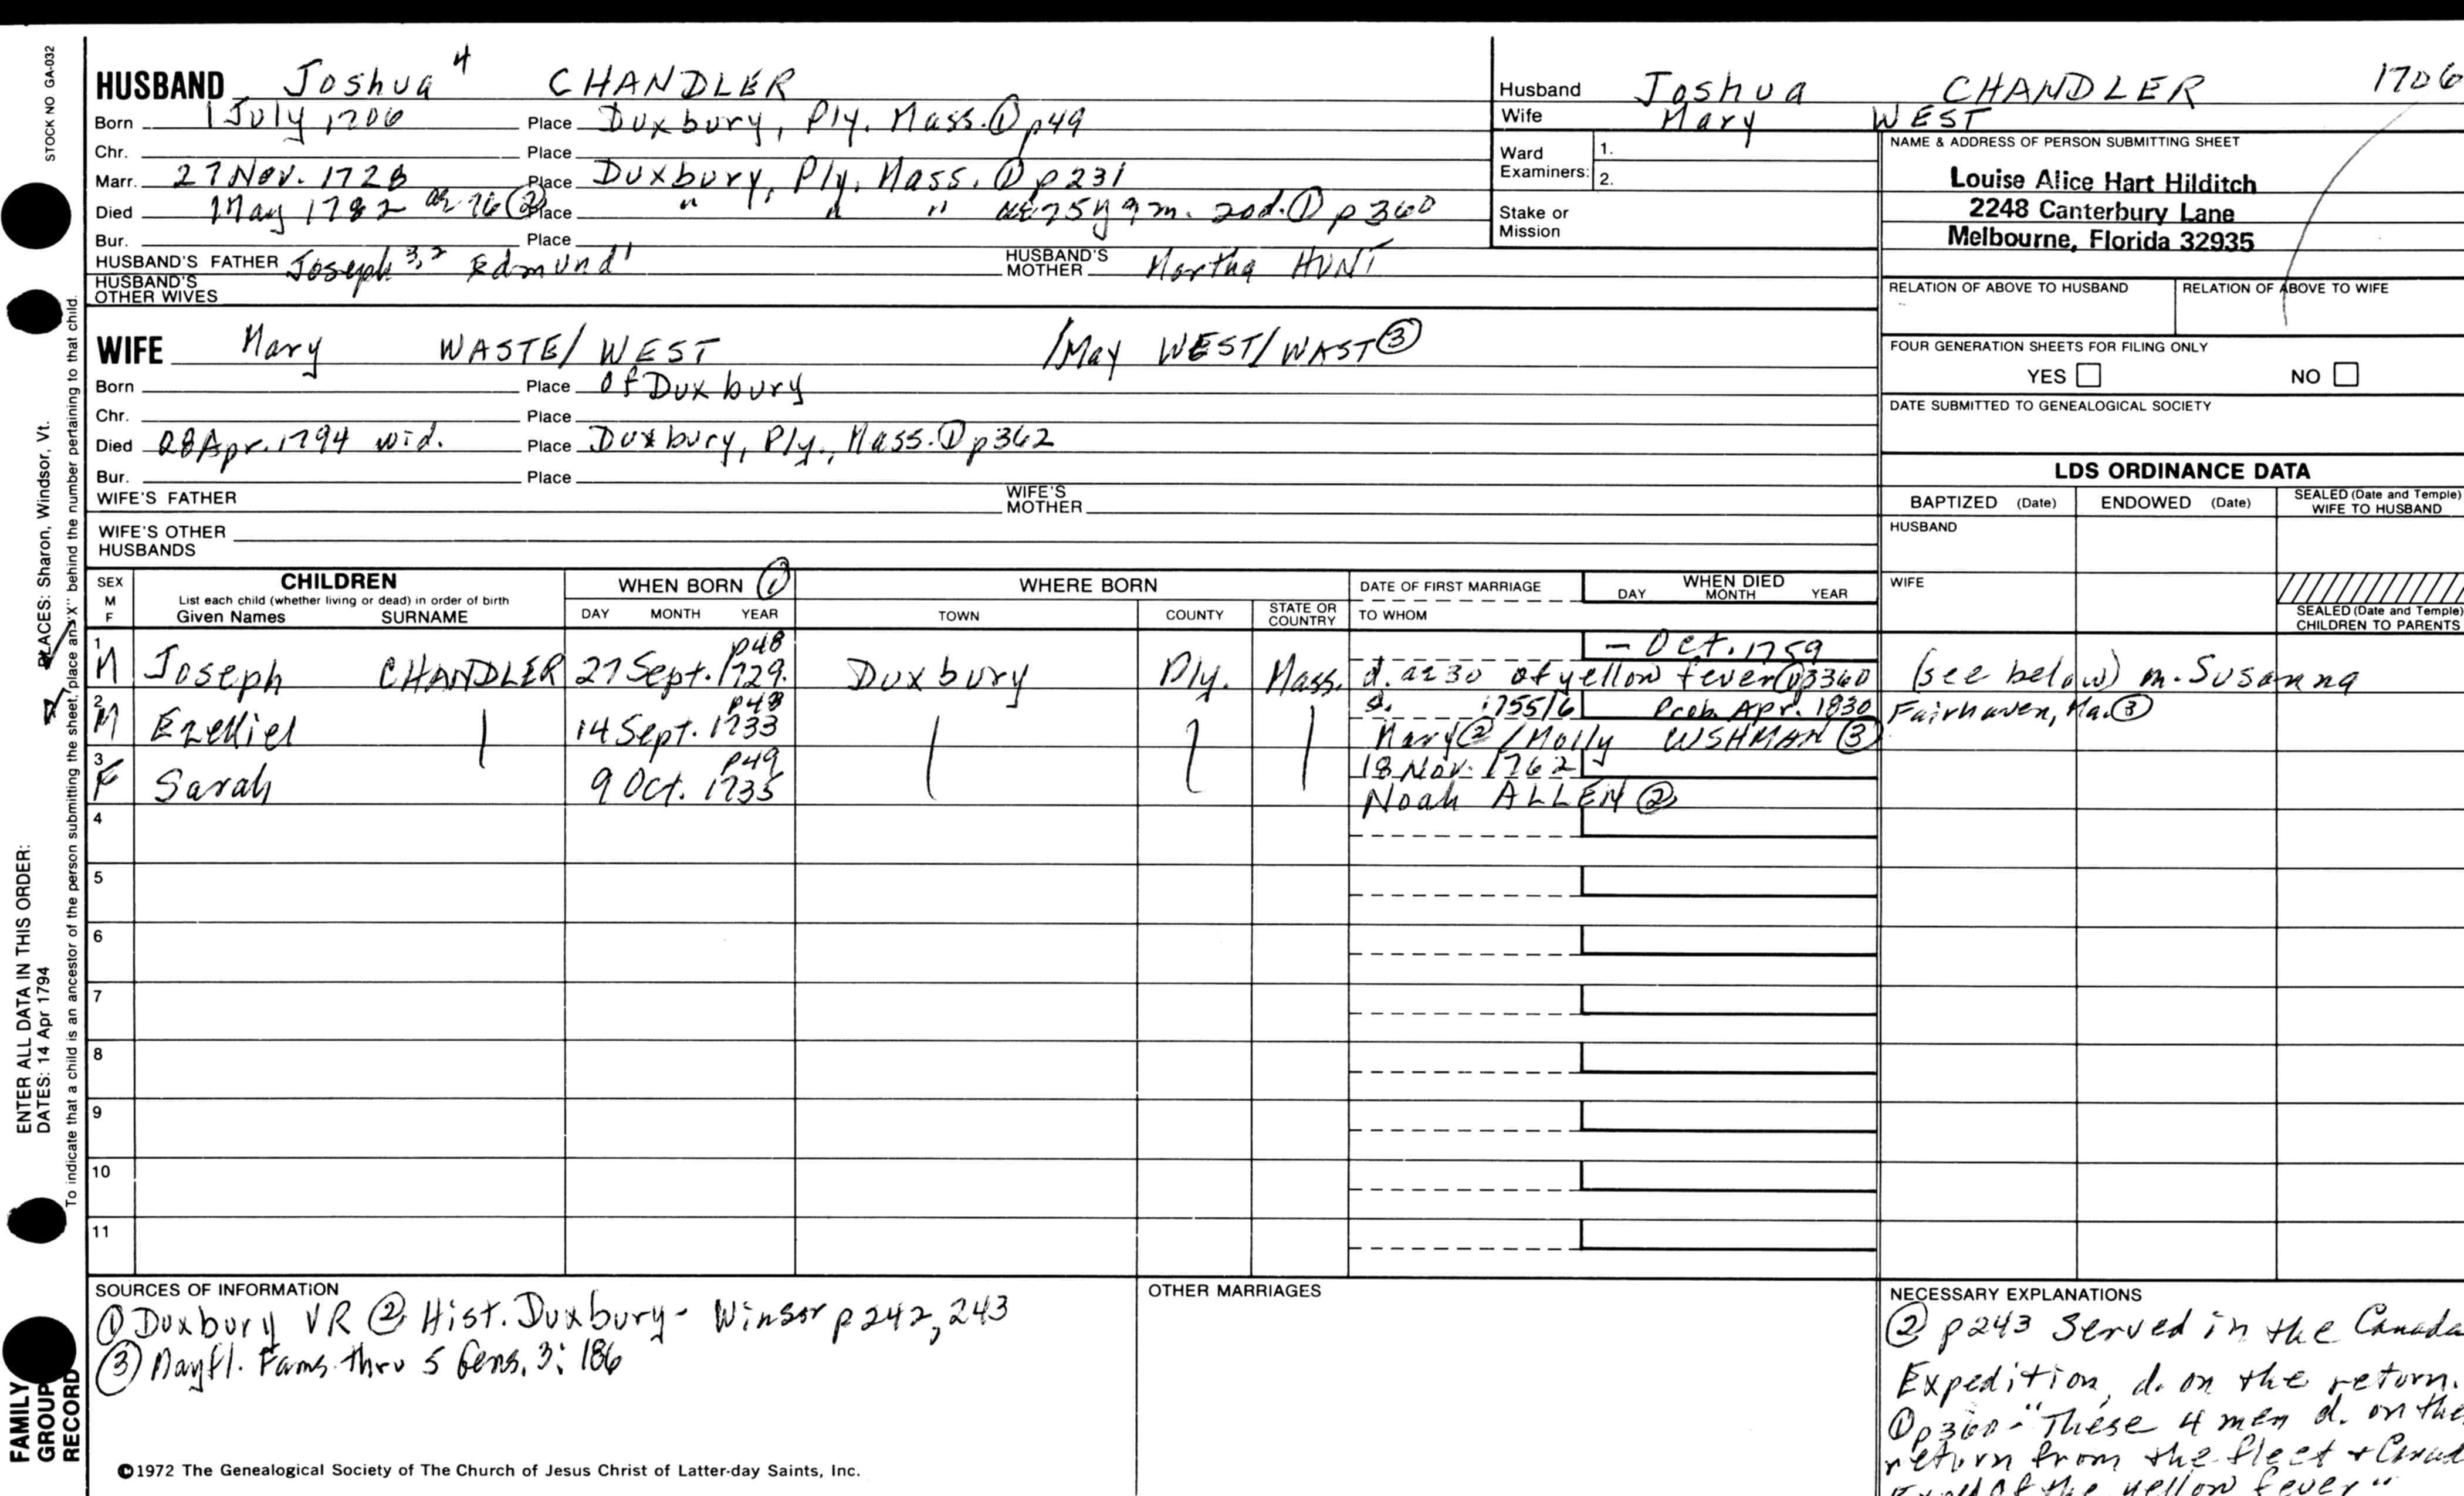 STOCK NO GA-032
HUSBAND Joshua 4 CHANDLER
Born 1 July 1706 Place Duxbury, Ply. Mass. ① p49
Chr. Place
Marr. 27 Nov. 1728 Place Duxbury, Ply. Mass. ① p231
Died May 1782 ae 76 ② Place " " " " ae 75y 9m. 20d. ① p360
Bur. Place
HUSBAND'S FATHER Joseph 3,2 Edmund 1 HUSBAND'S MOTHER Martha HUNT
HUSBAND'S OTHER WIVES
WIFE Mary WASTE/ WEST /May WEST/WAST ③
Born Place of Duxbury
Chr. Place
Died 28 Apr. 1794 wid. Place Duxbury, Ply., Mass. ① p362
Bur. Place
WIFE'S FATHER WIFE'S MOTHER
WIFE'S OTHER HUSBANDS
Husband Joshua CHANDLER 1706
Wife Mary WEST
Ward Examiners: 1. 2.
Stake or Mission
NAME & ADDRESS OF PERSON SUBMITTING SHEET
Louise Alice Hart Hilditch
2248 Canterbury Lane
Melbourne, Florida 32935
RELATION OF ABOVE TO HUSBAND RELATION OF ABOVE TO WIFE
FOUR GENERATION SHEETS FOR FILING ONLY
YES NO
DATE SUBMITTED TO GENEALOGICAL SOCIETY
LDS ORDINANCE DATA
BAPTIZED (Date) ENDOWED (Date) SEALED (Date and Temple) WIFE TO HUSBAND
HUSBAND
WIFE
SEALED (Date and Temple) CHILDREN TO PARENTS
SEX M F CHILDREN WHEN BORN ① WHERE BORN DATE OF FIRST MARRIAGE WHEN DIED
List each child (whether living or dead) in order of birth
Given Names SURNAME DAY MONTH YEAR TOWN COUNTY STATE OR COUNTRY TO WHOM DAY MONTH YEAR
p48 - Oct. 1759
1 M Joseph CHANDLER 27 Sept. 1729. Duxbury Ply. Mass. d. ae 30 of yellow fever ① p360 (see below) m. Susanna
p48 1755/6 Prob. Apr. 1830 Fairhaven, Ma. ③
2 M Ezekiel 14 Sept. 1733 Mary ② /Molly USHMAN ③
p49 18 Nov. 1762
3 F Sarah 9 Oct. 1735 Noah ALLEN ②
4
5
6
7
8
9
10
11
SOURCES OF INFORMATION
① Duxbury VR ② Hist. Duxbury - Winsor p242, 243
③ Mayfl. Fams. thru 5 Gens. 3: 186
OTHER MARRIAGES
NECESSARY EXPLANATIONS
② p243 Served in the Canada
Expedition, d. on the return.
① p360 - "These 4 men d. on the
return from the fleet +
of the yellow fever"
©1972 The Genealogical Society of The Church of Jesus Christ of Latter-day Saints, Inc.
ENTER ALL DATA IN THIS ORDER:
DATES: 14 Apr 1794 PLACES: Sharon, Windsor, Vt.
To indicate that a child is an ancestor of the person submitting the sheet, place an "X" behind the number pertaining to that child.
FAMILY GROUP RECORD